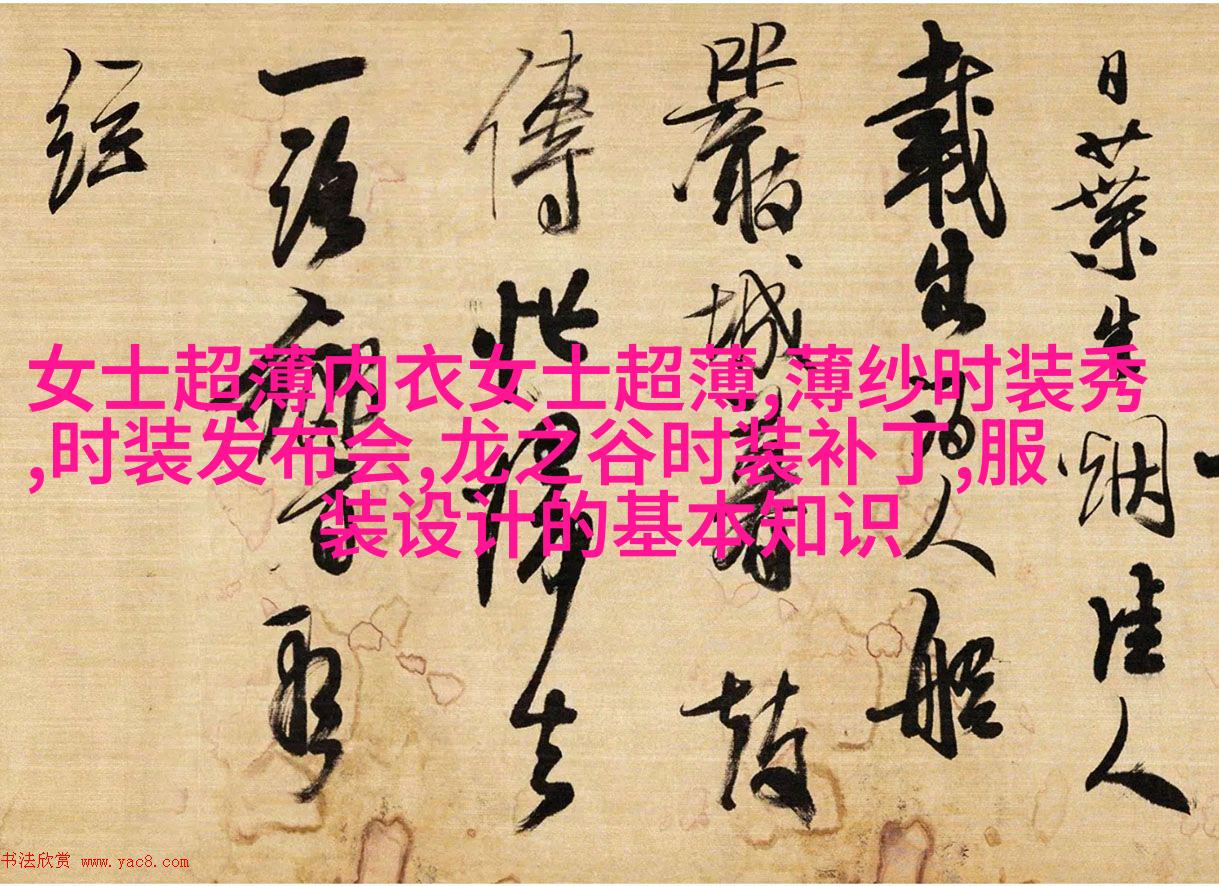 日葉生烟佳人
載生人船
嚴城暮鼓
傳此歸去
一路
女士超薄内衣女士超薄,薄纱时装秀
,时装发布会,龙之谷时装补丁,服
装设计的基本知识
书法欣赏 www.yac8.com